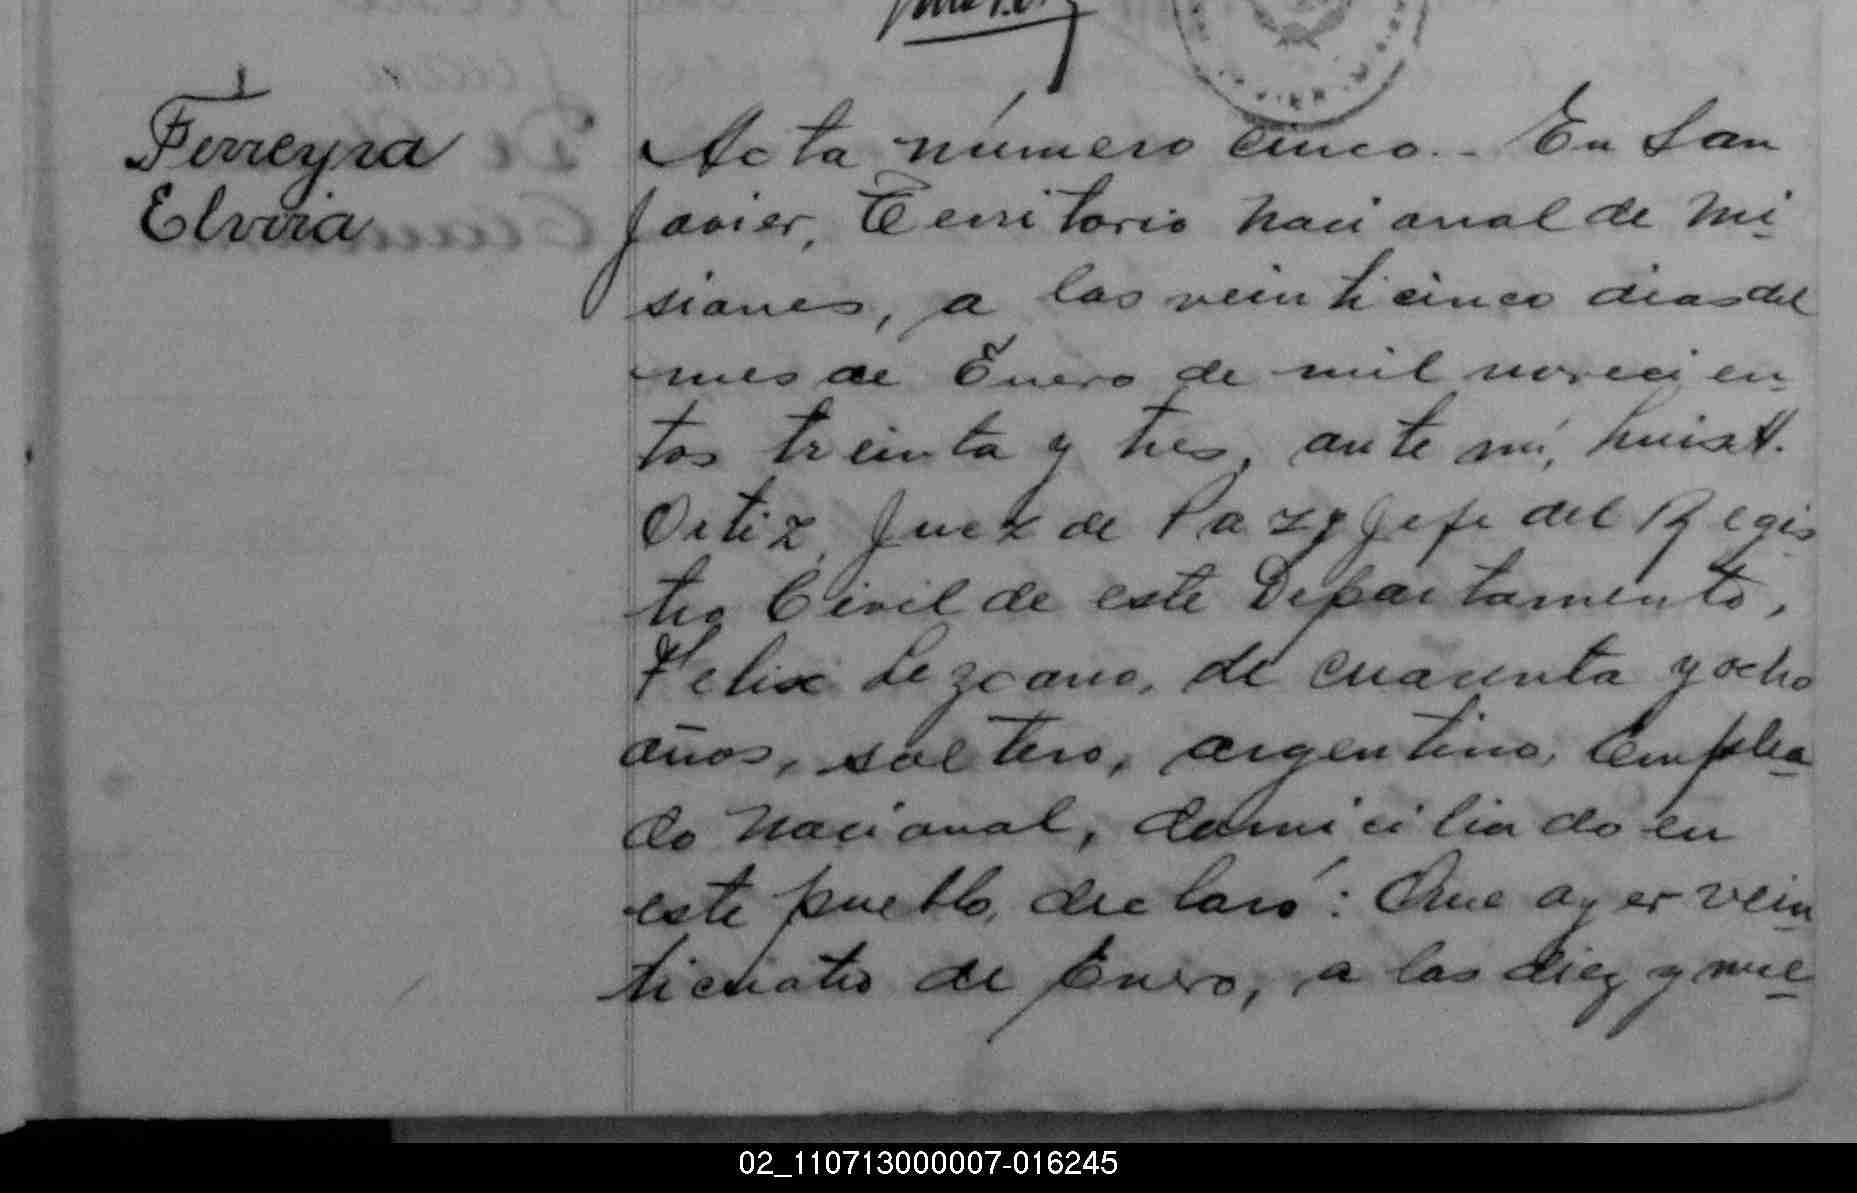 Ferreyra
Elvira
Acta número cinco.- En San
Javier, Territorio Nacional de Mi-
siones, a los veinticinco dias del
mes de Enero de mil noveci en-
tos treinta y tres, ante mí, Luis A.
Ortiz, Juez de Paz y Jefe del Regis-
tro Civil de este Departamento,
Felix Lezcano, de cuarenta y ocho
años, soltero, argentino, Emplea-
do Nacional, domiciliado en
este pueblo, declaró: Que ayer vein-
ticuatro de Enero, a las diez y nue-
02_110713000007-016245